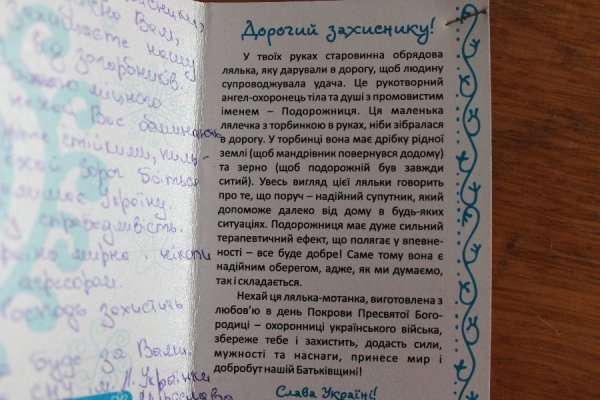 Вам,
нашу
від загарбників.
міцного
Вас
стійкими,
ворог боїться
Україну
справедливість.
мирна і ніхто
агресором.
Господь захистить
буде за Вами.
Дорогий захиснику!
У твоїх руках старовинна обрядова
лялька, яку дарували в дорогу, щоб людину
супроводжувала удача. Це рукотворний
ангел-охоронець тіла та душі з промовистим
іменем – Подорожниця. Ця маленька
лялечка з торбинкою в руках, ніби зібралася
в дорогу. У торбинці вона має дрібку рідної
землі (щоб мандрівник повернувся додому)
та зерно (щоб подорожній був завжди
ситий). Увесь вигляд цієї ляльки говорить
про те, що поруч – надійний супутник, який
допоможе далеко від дому в будь-яких
ситуаціях. Подорожниця має дуже сильний
терапевтичний ефект, що полягає у впевне-
ності – все буде добре! Саме тому вона є
надійним оберегом, адже, як ми думаємо,
так і складається.
Нехай ця лялька-мотанка, виготовлена з
любов'ю в день Покрови Пресвятої Бого-
родиці – охоронниці українського війська,
збереже тебе і захистить, додасть сили,
мужності та наснаги, принесе мир і
добробут нашій Батьківщині!
Слава Україні!